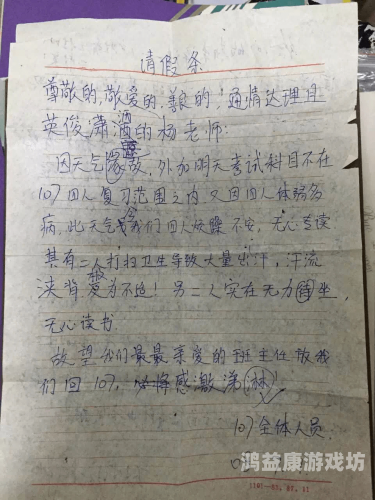 请假条
尊敬的,敬爱的,善良的,通情达理且
英俊潇洒的杨老师:
因天气,外加明天考试科目不在
107四人复习范围之内 又因四人体弱多
病,此天气令我们四人烦躁不安,无心专读
其有二人打扫卫生导致大量出汗,汗流
浃背,不绝!另二人实在无力待坐,
无心读书.
故望我们最最亲爱的班主任放我
们回107,必将感激涕淋
107全体人员
鸿益康游戏坊